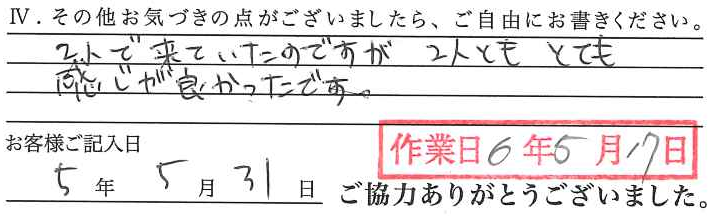 Ⅳ．その他お気づきの点がございましたら、ご自由にお書きください。
2人で来ていたのですが 2人とも とても
感じが良かったです。
お客様ご記入日
作業日6年5月17日
5年 5月31日
ご協力ありがとうございました。